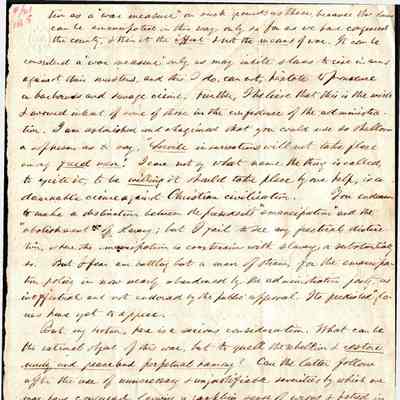 tion as a "war measure" on such grounds as these, because the slaves
can be emancipated in this way, only so far as we have conquered
the country, & then it the effect & not the means of war. It can be
considered a "war measure" only as may incite slaves to rise in arms
against their masters, and this I do, can not, hesitate to pronounce
a barbarous and savage crime. Further, I believe that this is the
& avowed intent of some of those in the confidence of the administra-
tion. I am astonished and chagrined that you could use so shallow
a sophism as to say, Servile insurrections will not take place
among freed men! I care not by what name the thing is called,
to excite it, to be willing it should take place by our help, is a
damnable crime against Christian civilization. You endeavor
to make a distinction between the president's emancipation and the
abolishment of slavery; but I fail to see any practical distinc-
tion,
So. But I fear am battling but a man of straw, for the emancipa-
tion policy is now nearly abandoned by the administration party, as
ineffectual and not endorsed by the public approval. Its
have yet to appear.
But my Brother, here is a serious consideration. What can be
the rational object of this war, but to quell the rebellion & restore
unity and peace and perpetual harmony? Can the latter follow
after the use of unnecessary & unjustifiable severities by which we
may have conquered leaving a rankling sense of wrong & hatred in